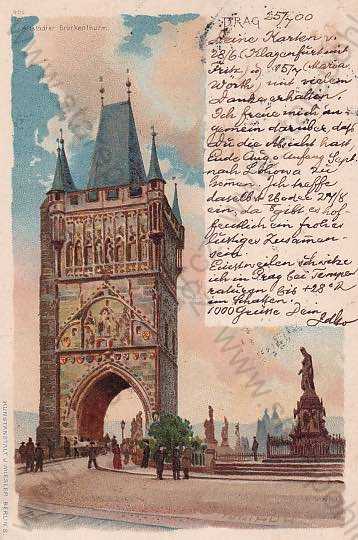 Altstädter Brückenthurm.
PRAG
25/7 00
Deine Karten v.
28/6 (Klagenfurt mit
Fritz) u. 15/7 (Maria
Wörth) mit vielem
Danke erhalten.
Ich freue mich un-
gemein darüber, daß
Du die Absicht hast,
Ende Aug. o. Anfang Sept.
nach zu
kommen. Ich treffe
daselbst 28/8
ein, da gibt es hof-
fentlich ein frohes
lustiges Zusammen-
sein
Einstweilen schwitze
ich in Prag bei Tempe-
raturen bis +28°R
im Schatten.
1000 Grüße Dein
KUNSTANSTALT V. MIESLER, BERLIN S.